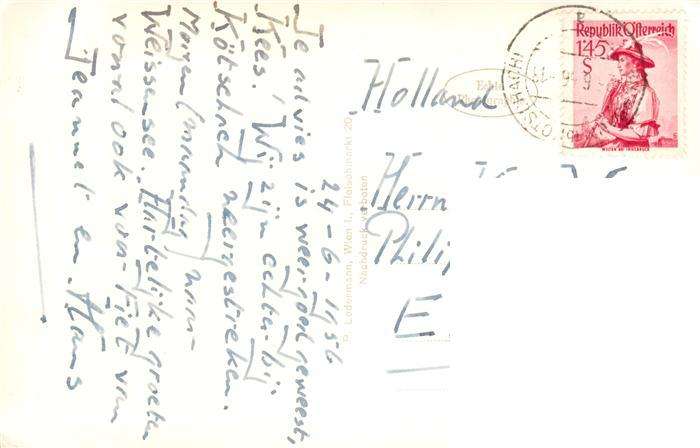 24-6-1956
Je advies is weer goed geweest,
Kees. Wij zijn echter bij
Kötschach neergestreken.
Morgen naar
Weissensee. Hartelijke groeten
vooral ook von Fiet van
Jeannet en Hans
Holland
Herrn
Philip
E
P. Ledermann, Wien I., Fleischmarkt 20
Nachdruck verboten
Echte
KÖTSCHACH
Republik Österreich
1·45
S